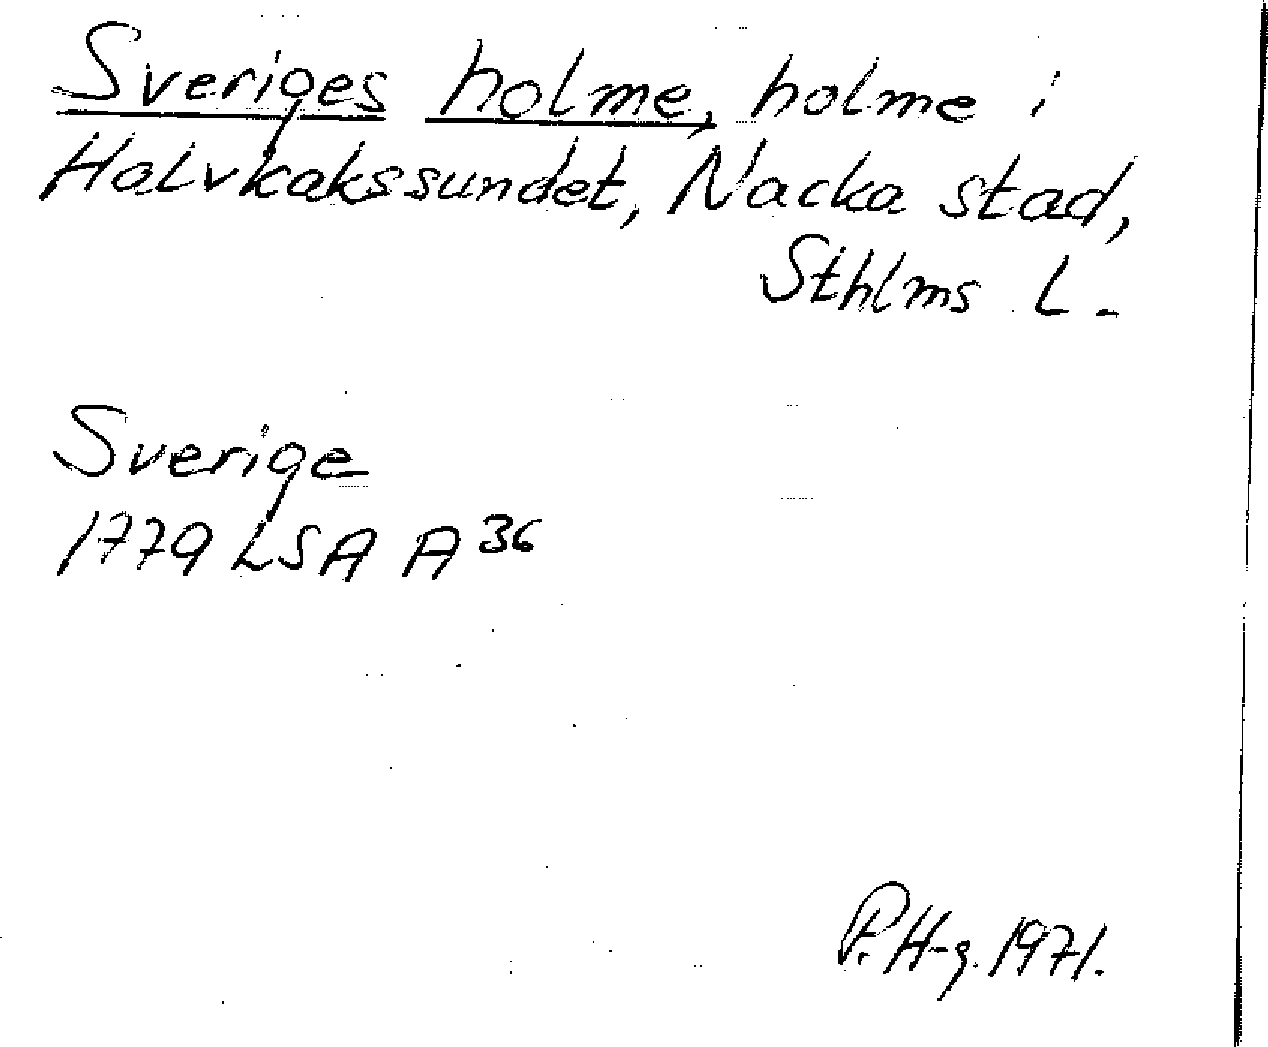 Sveriges holme, holme i
Halvkakssundet, Nacka stad,
Sthlms L.
Sverige
1779 LSA A 36
P. H-g. 1971.